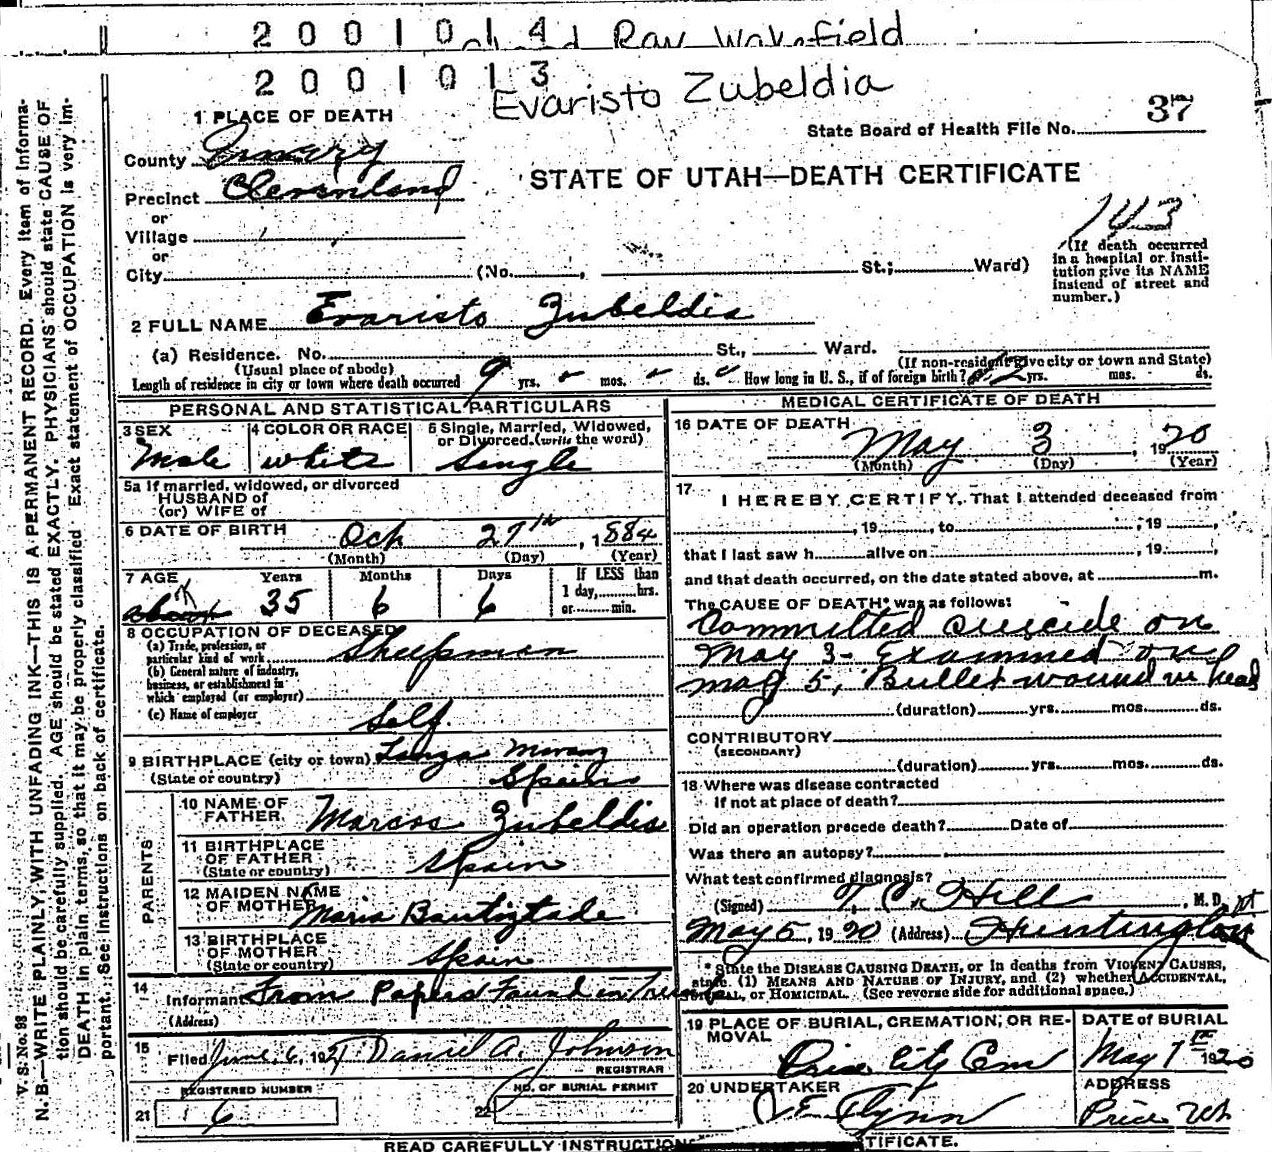 2001014
Ray Wakefield
2001013
Evaristo Zubeldia
37
1 PLACE OF DEATH
State Board of Health File No.
County Emery
STATE OF UTAH—DEATH CERTIFICATE
Precinct Cleveland
or
Village
or
City (No. , St.; Ward)
143
(If death occurred
in a hospital or insti-
tution give its NAME
instead of street and
number.)
2 FULL NAME Evaristo Zubeldia
(a) Residence. No. St., Ward.
(Usual place of abode) (If non-resident give city or town and State)
Length of residence in city or town where death occurred 9 yrs. mos. ds. How long in U. S., if of foreign birth? 12 yrs. mos. ds.
PERSONAL AND STATISTICAL PARTICULARS
3 SEX 4 COLOR OR RACE 5 Single, Married, Widowed,
or Divorced. (write the word)
Male white Single
5a If married, widowed, or divorced
HUSBAND of
(or) WIFE of
6 DATE OF BIRTH Oct 27th, 1884
(Month) (Day) (Year)
7 AGE Years Months Days If LESS than
1 day, hrs.
or min.
about 35 6 6
8 OCCUPATION OF DECEASED
(a) Trade, profession, or
particular kind of work Sheepman
(b) General nature of industry,
business, or establishment in
which employed (or employer)
(c) Name of employer Self.
9 BIRTHPLACE (city or town)
(State or country) Spain
PARENTS
10 NAME OF
FATHER Marcos Zubeldia
11 BIRTHPLACE
OF FATHER
(State or country) Spain
12 MAIDEN NAME
OF MOTHER Maria
13 BIRTHPLACE
OF MOTHER
(State or country) Spain
14
Informant From Papers Found in
(Address)
15
Filed June 6, 192 Daniel A. Johnson
REGISTRAR
REGISTERED NUMBER NO. OF BURIAL PERMIT
21 6 22
MEDICAL CERTIFICATE OF DEATH
16 DATE OF DEATH
May 3, 1920
(Month) (Day) (Year)
17
I HEREBY CERTIFY, That I attended deceased from
, 19 , to , 19 ,
that I last saw h alive on , 19 ,
and that death occurred, on the date stated above, at m.
The CAUSE OF DEATH* was as follows:
Committed suicide on
May 3 - Examined on
May 5, Bullet wound in head
(duration) yrs. mos. ds.
CONTRIBUTORY
(SECONDARY)
(duration) yrs. mos. ds.
18 Where was disease contracted
if not at place of death?
Did an operation precede death? Date of
Was there an autopsy?
What test confirmed diagnosis?
(Signed) T. C. Hill, M. D.
May 5, 1920 (Address) Huntington
* State the DISEASE CAUSING DEATH, or in deaths from VIOLENT CAUSES,
state (1) MEANS AND NATURE OF INJURY, and (2) whether ACCIDENTAL,
SUICIDAL, OR HOMICIDAL. (See reverse side for additional space.)
19 PLACE OF BURIAL, CREMATION, OR RE-
MOVAL
Price City Cem
DATE of BURIAL
May 7th 1920
20 UNDERTAKER
J. E. Flynn
ADDRESS
Price Ut.
READ CAREFULLY INSTRUCTIONS CERTIFICATE.
V. S. No. 98
N. B.—WRITE PLAINLY, WITH UNFADING INK—THIS IS A PERMANENT RECORD. Every item of informa-
tion should be carefully supplied. AGE should be stated EXACTLY. PHYSICIANS should state CAUSE OF
DEATH in plain terms, so that it may be properly classified. Exact statement of OCCUPATION is very im-
portant. See instructions on back of certificate.